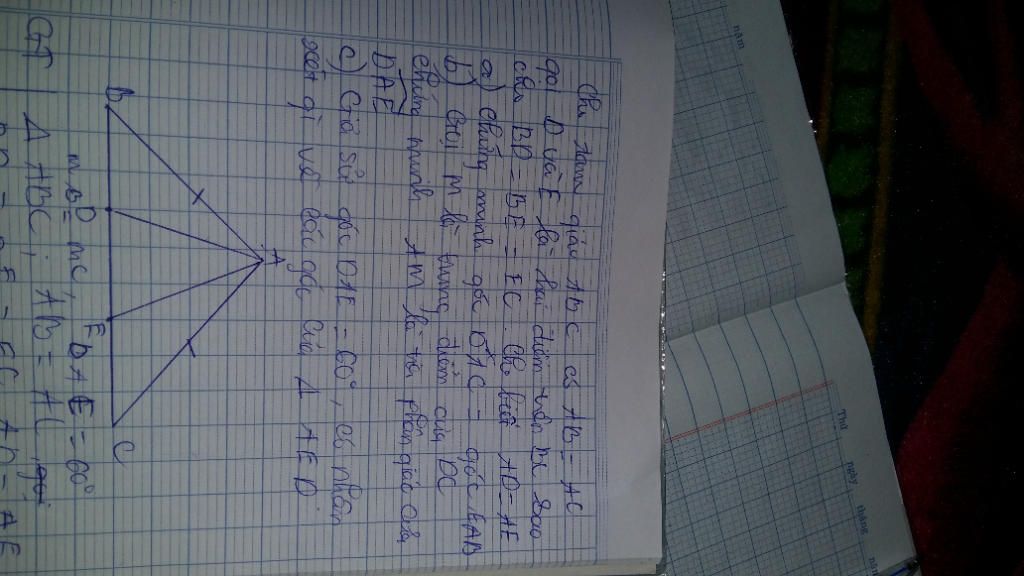 Cho tam giác ABC có AB = AC
gọi D và E là hai điểm trên BC sao
cho BD = BE = EC. Cho biết AD = AE
a) Chứng minh góc DAC = góc EAB
b) Gọi M là trung điểm của DC
chứng minh AM là tia phân giác của
DAE
c) Giả sử góc DAE = 60°, có nhận
xét gì về các góc của Δ AED
A
B
D
E
C
MB = MC, DAE = 60°
GT
Δ ABC; AB = AC
= EC, AD = AE
năm
Thứ ngày tháng năm